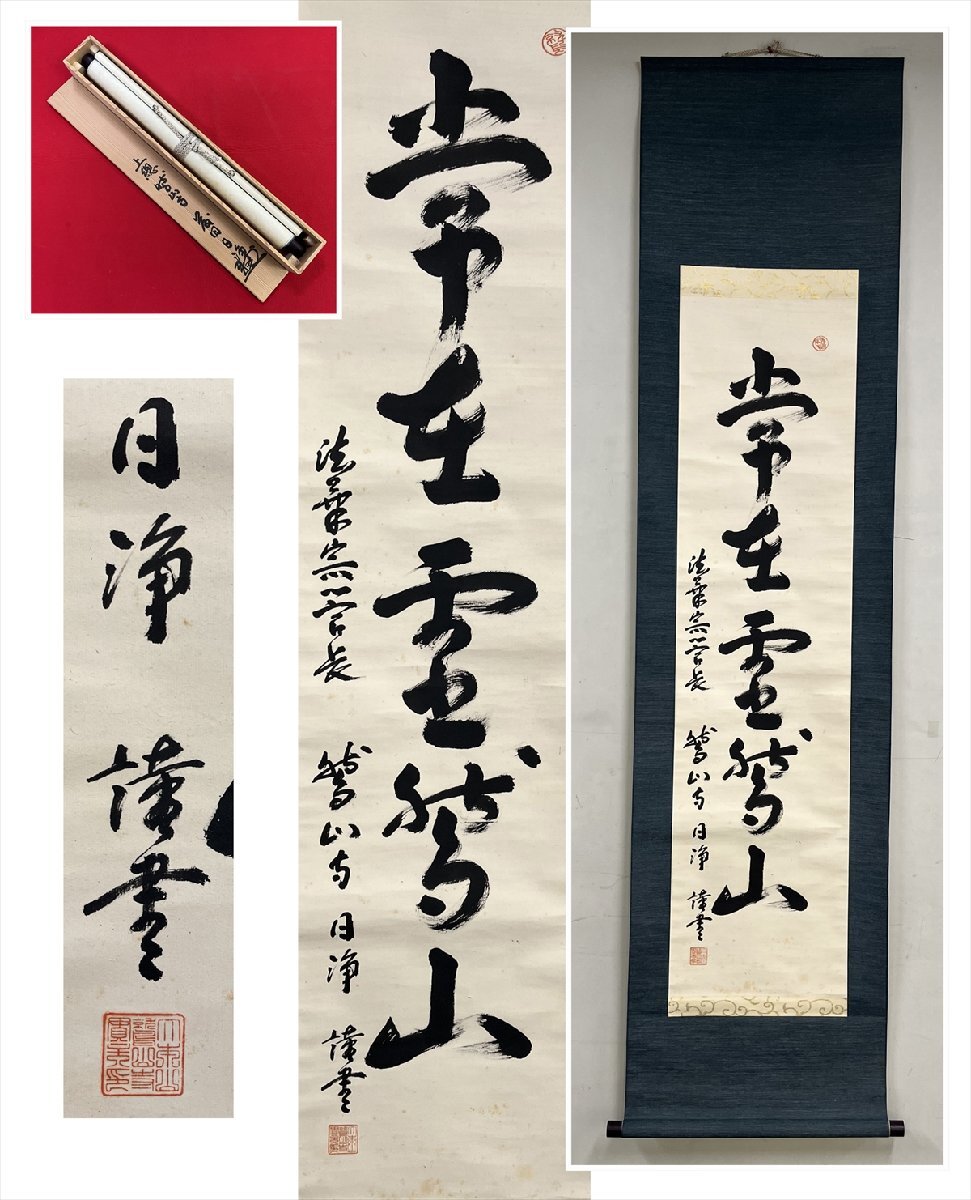 常在霊鷲山
法華宗管長 鷲山寺 日浄 謹書
日浄 謹書
常在霊鷲山
法華宗管長 鷲山寺 日浄 謹書